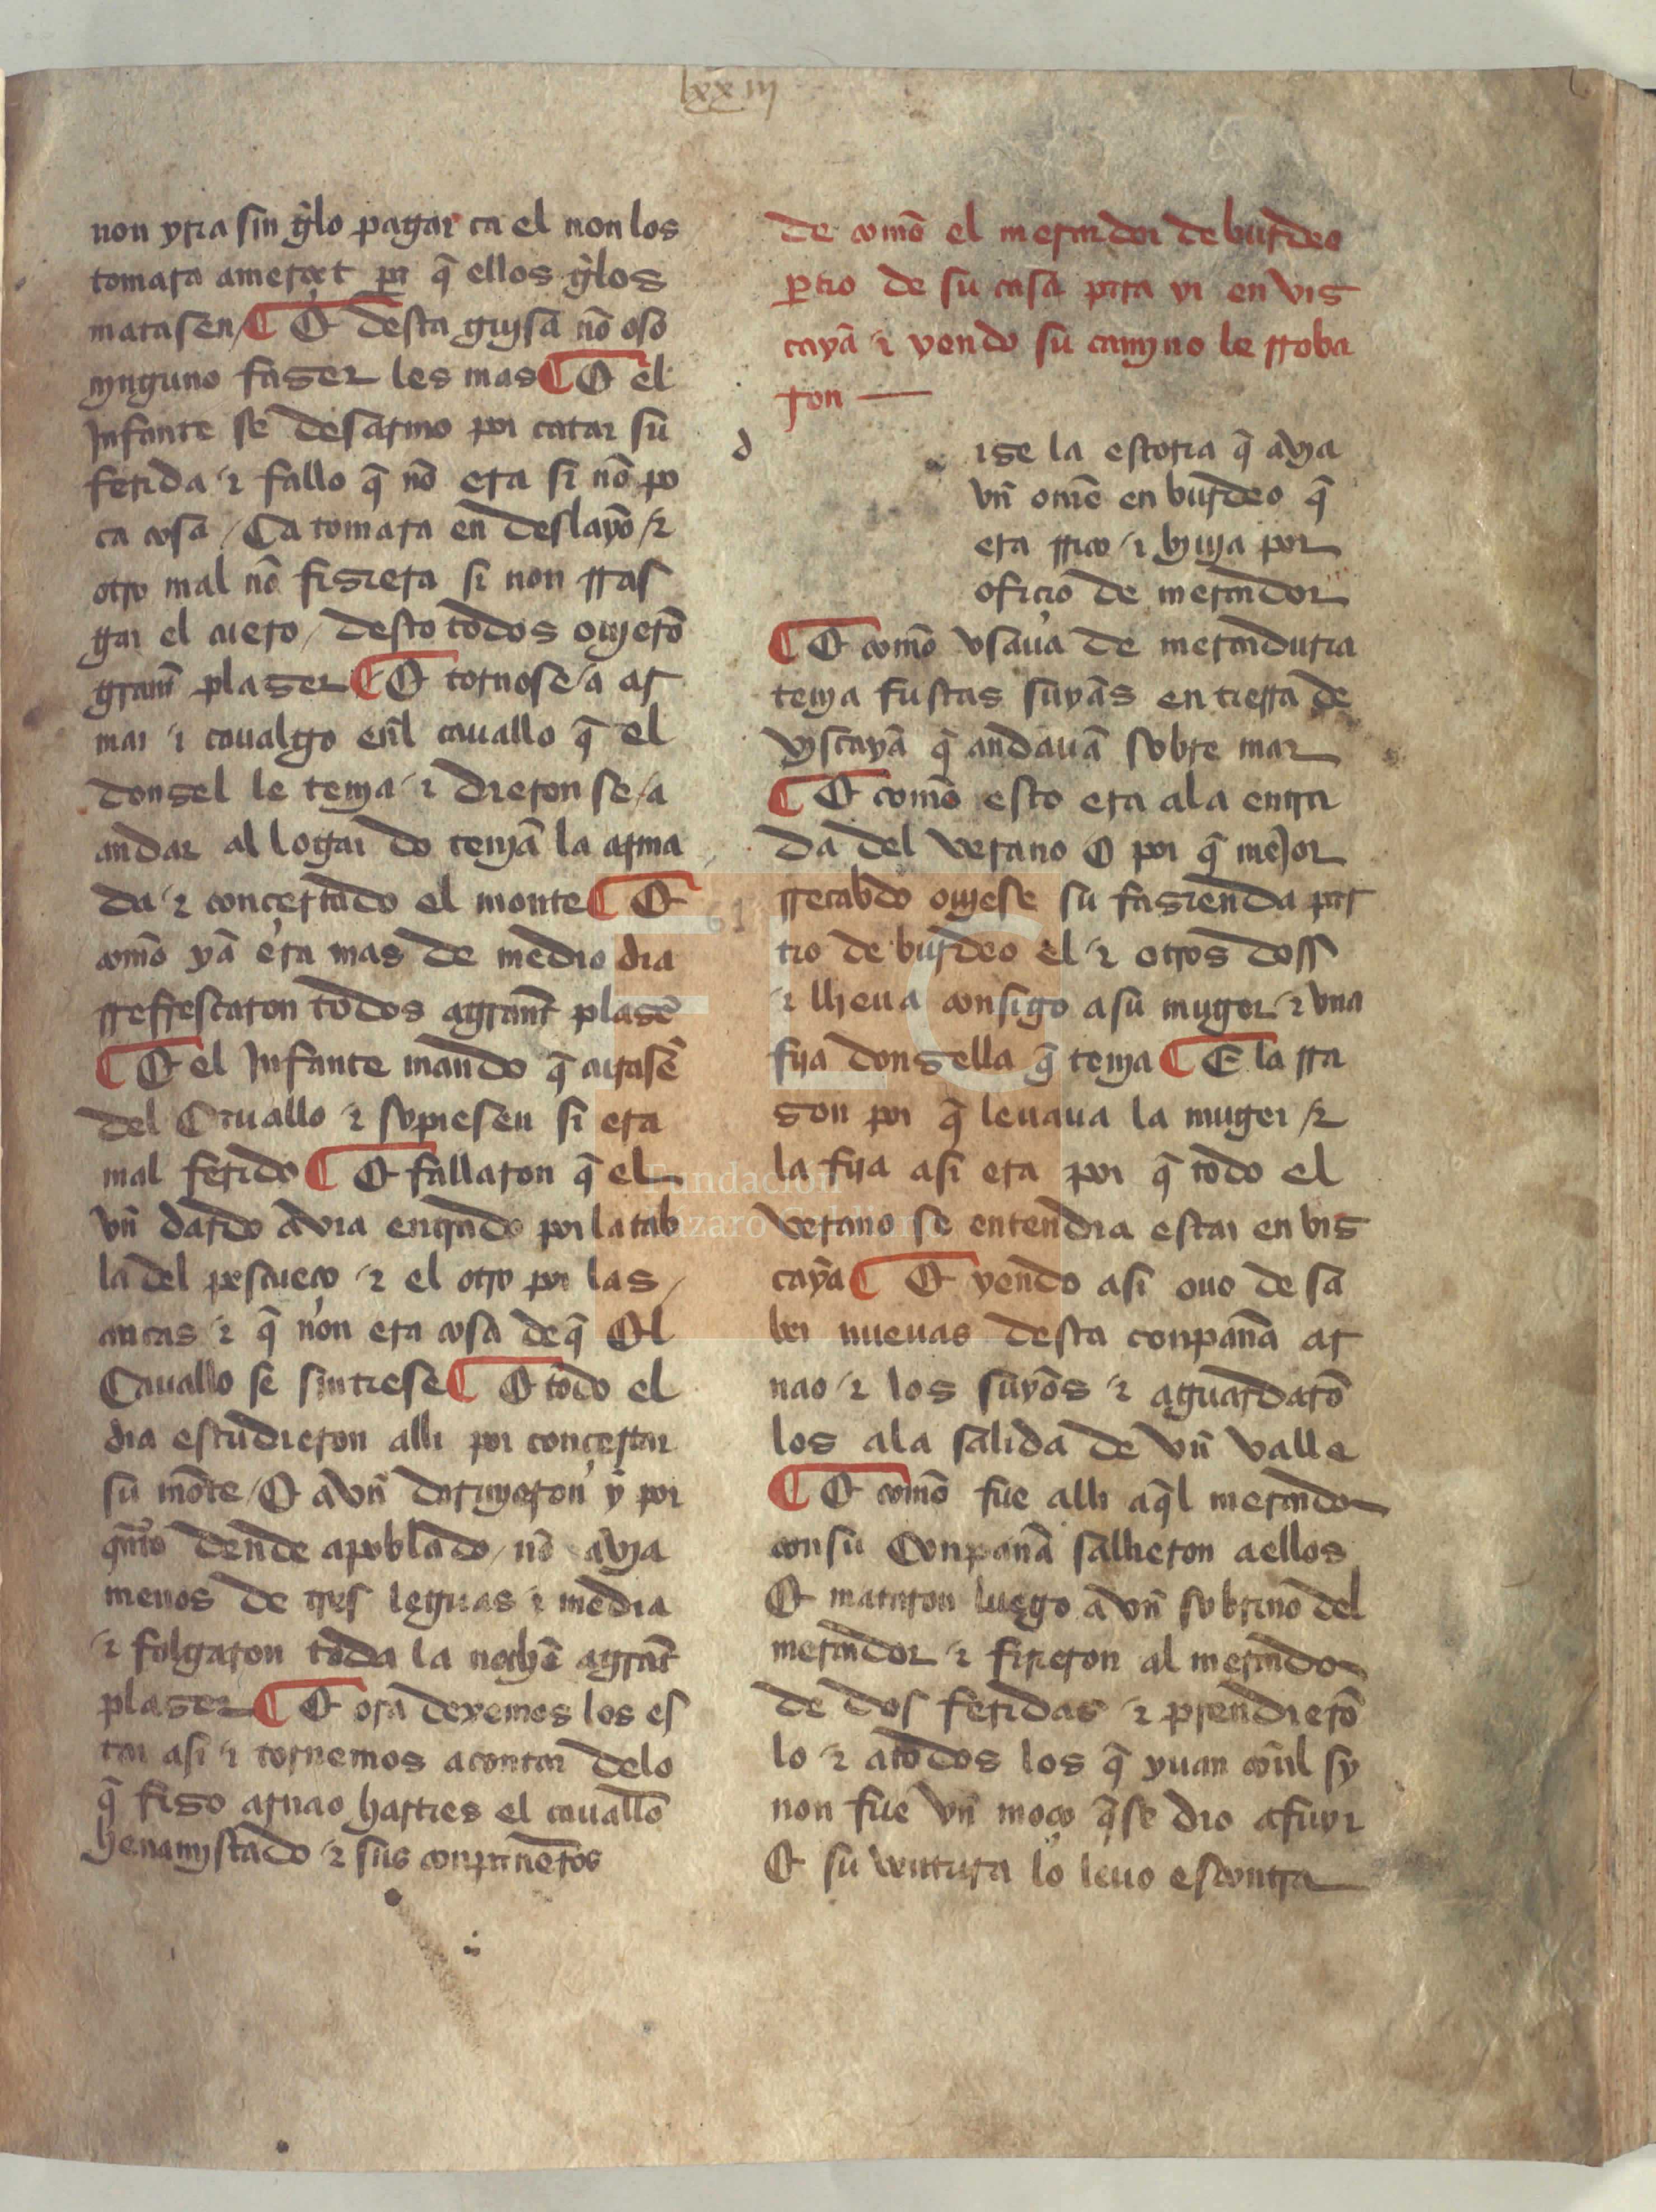 lxxiij
non yria sin gelo pagar ca el non los
tomara a merçet por q̃ ellos gelos
matasen / ¶ E desta guysa nõ oso
nynguno faser les mas ¶ E el
Infante se desarmo por catar su
ferida ⁊ fallo q̃ nõ era si nõ po
ca cosa / Ca tomara en deslayo / ⁊
otro mal nõ fisiera si non rras
gar el cuero / desto todos ouyerõ
grant plaser ¶ E tornose / a ar
mar ⁊ caualgo enl cauallo q̃ el
donsel le tenya ⁊ dieron se / a
andar al logar do tenyã la arma
da ⁊ conçertado el monte ¶ E
comõ yã era mas de medio dia
rrefrescaron todos a grant plasẽ
¶ E el Infante mando q̃ curasẽ
del Cauallo ⁊ sopiesen si era
mal ferido ¶ E fallaron q̃ el
vñ dardo avia entrado por la tab
la del pescueço ⁊ el otro por las /
ancas ⁊ q̃ non era cosa de q̃ El
Cauallo se sintiese ¶ E todo el
dia estudieron alli por conçertar
su mõte / E avñ duruyeron y por
q̃nto dende a poblado / nõ avya
menos de tres leguas ⁊ media
⁊ folgaron toda la nochẽ a grãt
plaser ¶ E ora dexemos los es
tar asi ⁊ tornemos a contar delo
q̃ fiso arnao harties el cauallo
henamystado ⁊ sus conpaneros
de comõ el mercador de burdeo
partio de su casa para yr en vis
cayã ⁊ yendo su camyno le rroba
ron —
d
ise la estoria q̃ avya
vñ omẽ en burdeo q̃
era rrico ⁊ byuya por
ofiçio de mercador
¶ E comõ vsaua de mercaduria
tenya fustas suyãs en tierra de
vyscayã q̃ andauã sobre mar
¶ E comõ esto era ala entra
da del verano E por q̃ mejor
rrecabdo ouyese su fasienda par
tio de burdeo el ⁊ otros doss
⁊ llieua consigo a su muger ⁊ vna
fija donsella q̃ tenya ¶ E la rra
son por q̃ leuaua la muger / ⁊
la fija asi era por q̃ todo el
verano se entendia estar en vis
cayã ¶ E yendo asi ouo de sa
ber nueuas desta conpanã ar
nao ⁊ los suyõs ⁊ aguardarõ
los ala salida de vñ valle
¶ E comõ fue alli aq̃l mercador
con su Conpanã salieron a ellos
E mataron luego a vñ sobrino del
mercador ⁊ firieron al mercador
de dos feridas ⁊ prendierõ
lo ⁊ a todos los q̃ yuan cõnl sy
non fue vñ moço q̃ se dio a fuyr
E su ventura lo leuo escontra
61
FLG
Fundación
Lázaro Galdiano